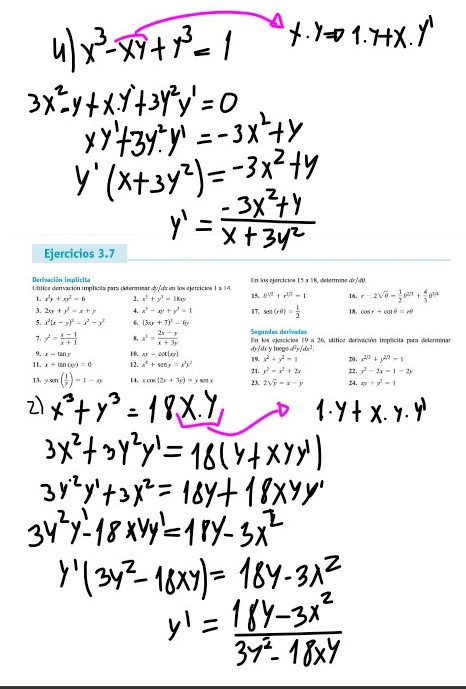 4) x³-xy+y³=1 x.y⇒1.y+x.y'
3x²-y+x.y'+3y²y'=0
xy'+3y².y'=-3x²+y
y'(x+3y²)=-3x²+y
y'=-3x²+y/x+3y²
Ejercicios 3.7
Derivación implícita
Utilice derivación implícita para determinar dy/dx en los ejercicios 1 a 14.
1. x²y + xy² = 6 2. x³ + y³ = 18xy
3. 2xy + y² = x + y 4. x³ − xy + y³ = 1
5. x²(x − y)² = x² − y² 6. (3xy + 7)² = 6y
7. y² = x − 1/x + 1 8. x³ = 2x − y/x + 3y
9. x = tan y 10. xy = cot (xy)
11. x + tan (xy) = 0 12. x⁴ + sen y = x³y²
13. y sen (1/y) = 1 − xy 14. x cos (2x + 3y) = y sen x
En los ejercicios 15 a 18, determine dr/dθ.
15. θ^1/2 + r^1/2 = 1 16. r − 2√θ = 3/2 θ^2/3 + 4/3 θ^3/4
17. sen (rθ) = 1/2 18. cos r + cot θ = rθ
Segundas derivadas
En los ejercicios 19 a 26, utilice derivación implícita para determinar
dy/dx y luego d²y/dx².
19. x² + y² = 1 20. x^2/3 + y^2/3 = 1
21. y² = x² + 2x 22. y² − 2x = 1 − 2y
23. 2√y = x − y 24. xy + y² = 1
2) x³+y³=18x.y 1.y+x.y.y'
3x²+3y²y'=18(y+xyy')
3y²y'+3x²=18y+18xyy'
3y²y'-18xyy'=18y-3x²
y'(3y²-18xy)=18y-3x²
y'=18y-3x²/3y²-18xy